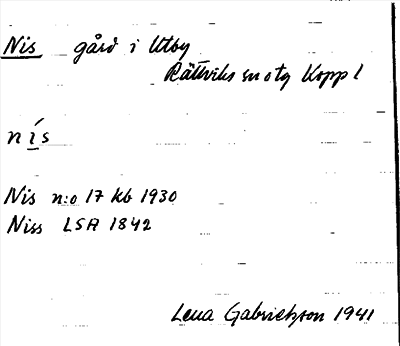 Nis gård i Utby
Rättviks sn o tg Kopp l
nís
Nis n:o 17 kb 1930
Niss LSA 1842
Lena Gabrielsson 1941